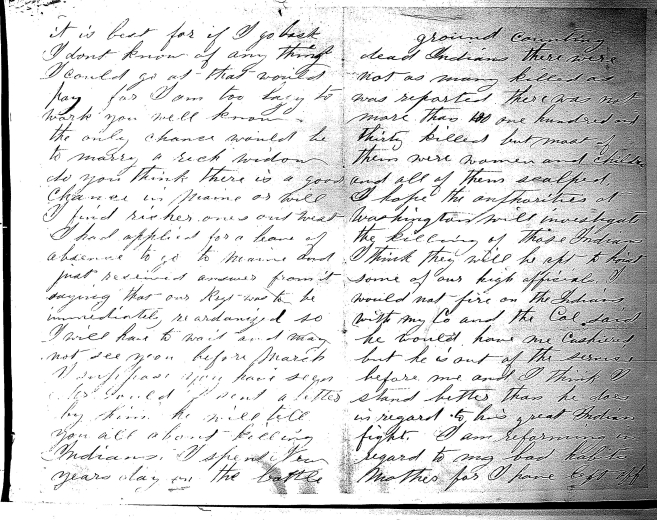 it is best for if I go back
I dont know of any thing
I could go at that would
pay for I am too lazy to
work you well know.
the only chance would be
to marry a rich widow
do you think there is a good
chance in Maine or will
I find richer ones out west
I had applied for a leave of
absence to go to Maine and
just received answer from it
saying that our Regt was to be
immediately reordanized so
I will have to wait and may
not see you before March
I suppose you have seen
I sent a letter
by him he will tell
you all about killing
Indians. I spent New
years day on the battle
ground counting
dead Indians there were
not as many killed as
was reported there was not
more than one hundred and
thirty killed but most of
them were women and children
and all of them scalped.
I hope the authorities at
Washington will investigate
the killing of those Indians
I think they will be apt to hoist
some of our high officials. I
would not fire on the Indians
with my Co and the Col. said
he would have me cashiered
but he is out of the service
before me and I think I
stand better than he does
in regard to his great Indian
fight. I am reforming in
regard to my bad habits
Mother for I have left off